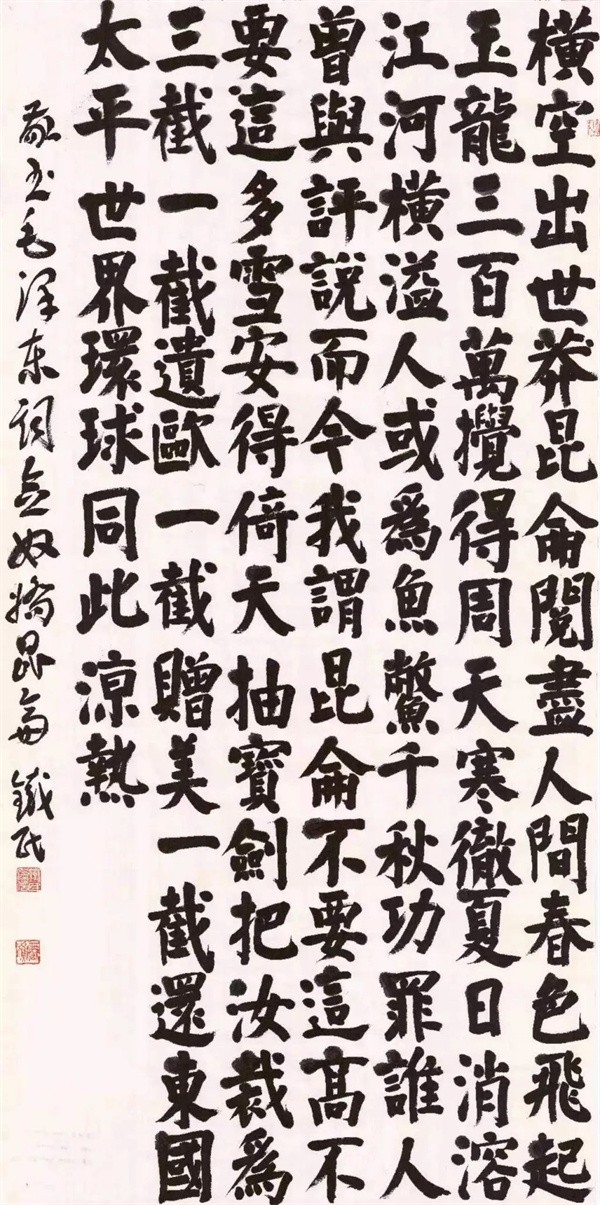 橫空出世莽昆侖閱盡人間春色飛起
玉龍三百萬攪得周天寒徹夏日消溶
江河橫溢人或爲魚鱉千秋功罪誰人
曾與評說而今我謂昆侖不要這髙不
要這多雪安得倚天抽寶劍把汝裁爲
三截一截遺歐一截贈美一截還東國
太平世界環球同此涼熱
敬書毛澤東詞念奴嬌昆侖 鐵民